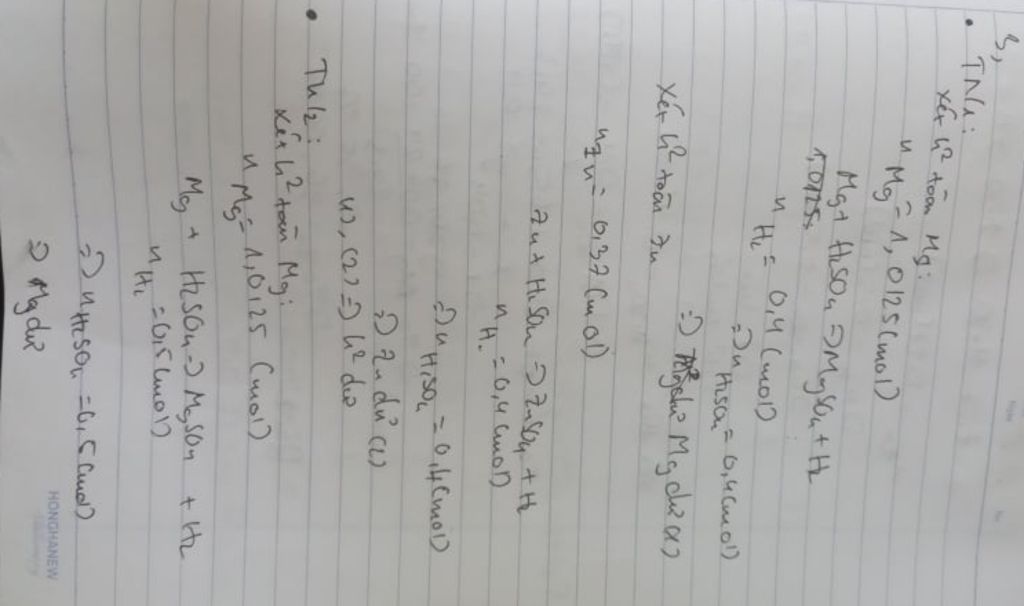 3,
• TN1:
xét h² toàn Mg:
n Mg = 1,0125 (mol)
Mg + H2SO4 => MgSO4 + H2
1,0125
n H2 = 0,4 (mol)
=> n H2SO4 = 0,4 (mol)
=> Mg dư (1)
Xét h² toàn Zn
n Zn = 0,37 (mol)
Zn + H2SO4 => ZnSO4 + H2
n H2 = 0,4 (mol)
=> n H2SO4 = 0,4 (mol)
=> Zn dư (2)
(1), (2) => h² dư
• TN2:
xét h² toàn Mg:
n Mg = 1,0125 (mol)
Mg + H2SO4 => MgSO4 + H2
n H2 = 0,5 (mol)
=> n H2SO4 = 0,5 (mol)
=> Mg dư
HONGHANEW